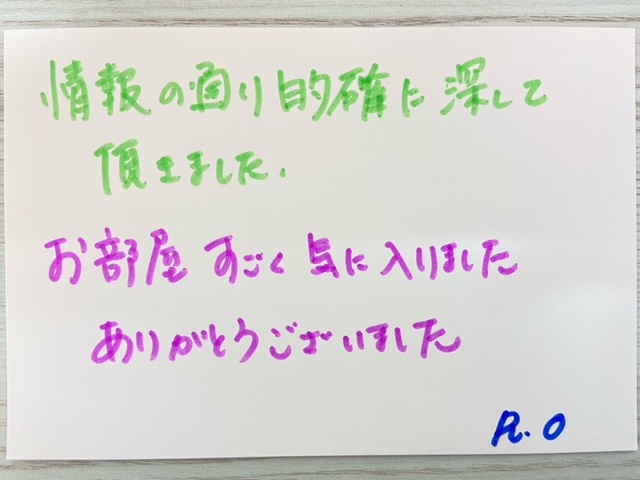 情報の通り的確に深して
頂きました.
お部屋 すごく 気に入りました
ありがとうございました
R.O